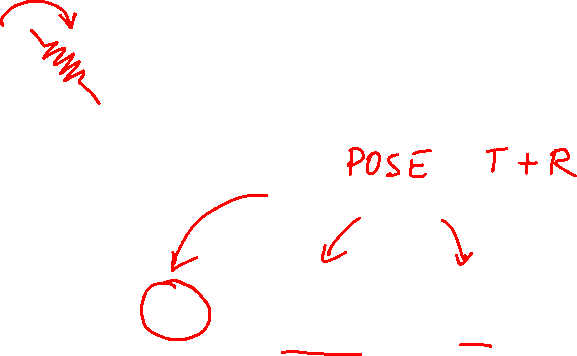 POSE T+R